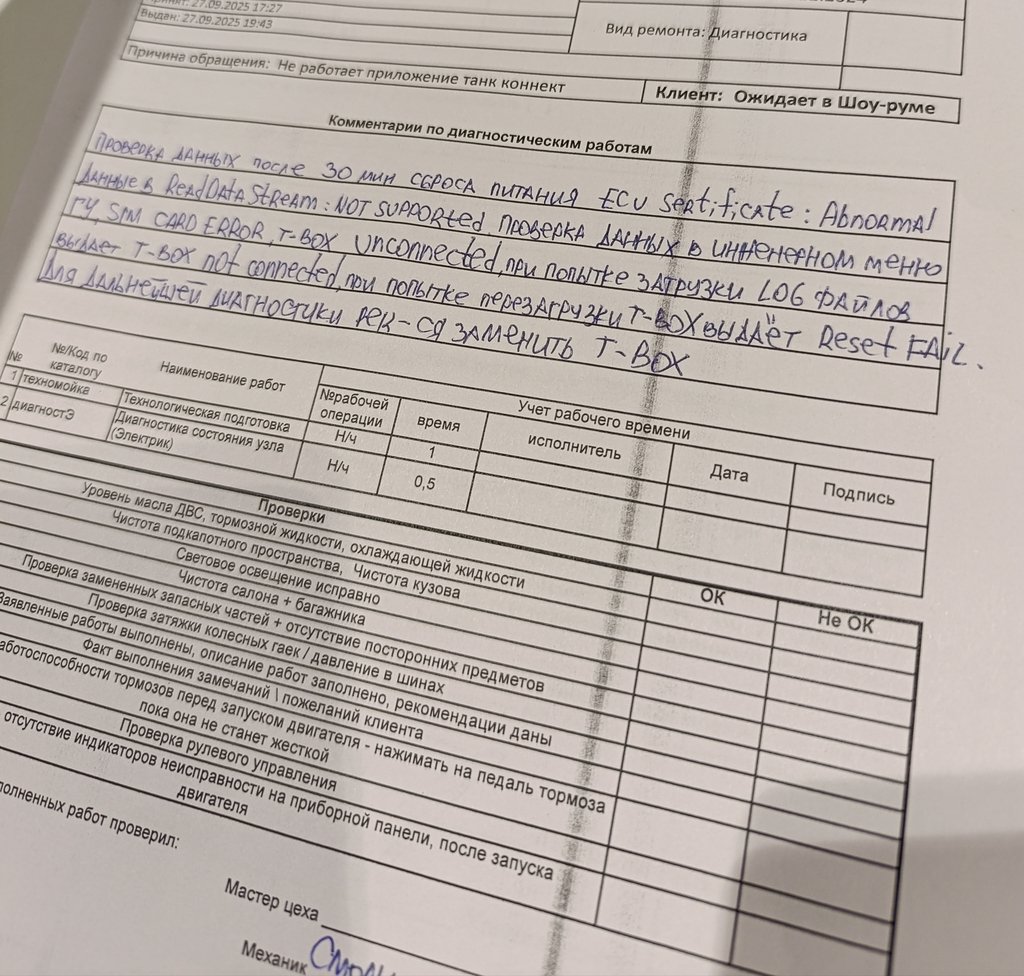 27.09.2025 17:27
Выдан: 27.09.2025 19:43
Вид ремонта: Диагностика
Причина обращения: Не работает приложение танк коннект
Клиент: Ожидает в Шоу-руме
Комментарии по диагностическим работам
Проверка данных после 30 мин сброса питания ECU Sertificate: Abnormal
Данные в Read Data Stream: NOT SUPPORTED проверка данных в инженерном меню
ГУ, SIM CARD ERROR, T-BOX Unconnected, при попытке загрузки LOG файлов
выдает T-BOX not connected, при попытке перезагрузки T-BOX выдаёт Reset FAiL.
Для дальнейшей диагностики рек-ся заменить T-BOX
№
№/Код по каталогу
Наименование работ
№рабочей операции
время
Учет рабочего времени
исполнитель
Дата
Подпись
1 техномойка Технологическая подготовка Н/ч 1
2 диагностЭ Диагностика состояния узла (Электрик) Н/ч 0,5
Проверки
ОК
Не ОК
Уровень масла ДВС, тормозной жидкости, охлаждающей жидкости
Чистота подкапотного пространства, Чистота кузова
Световое освещение исправно
Чистота салона + багажника
Проверка замененных запасных частей + отсутствие посторонних предметов
Проверка затяжки колесных гаек / давление в шинах
Заявленные работы выполнены, описание работ заполнено, рекомендации даны
Факт выполнения замечаний \ пожеланий клиента
аботоспособности тормозов перед запуском двигателя - нажимать на педаль тормоза
пока она не станет жесткой
Проверка рулевого управления
отсутствие индикаторов неисправности на приборной панели, после запуска
двигателя
полненных работ проверил:
Мастер цеха
Механик